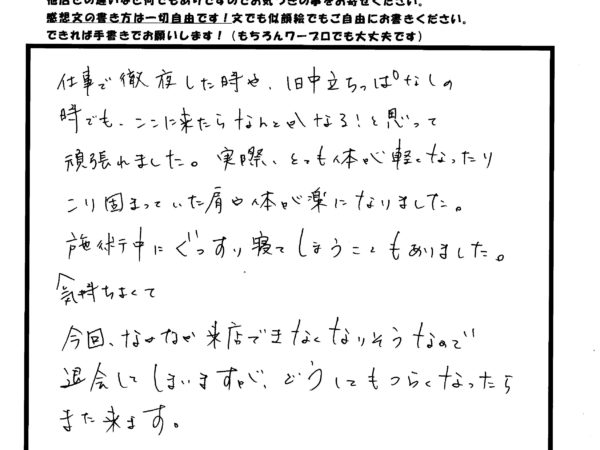 他店との違いなど何でもありですのでお気づきの事をお寄せください。
感想文の書き方は一切自由です！文でも似顔絵でもご自由にお書きください。
できれば手書きでお願いします！（もちろんワープロでも大丈夫です）
仕事で徹夜した時や、1日中立ちっぱなしの
時でも、ここに来たらなんとかなる！と思って
頑張れました。実際、とても体が軽くなったり
こり固まっていた肩や体が楽になりました。
施術中にぐっすり寝てしまうこともありました。
気持ちよくて
今回、なかなか来店できなくなりそうなので
退会してしまいますが、どうしてもつらくなったら
また来ます。